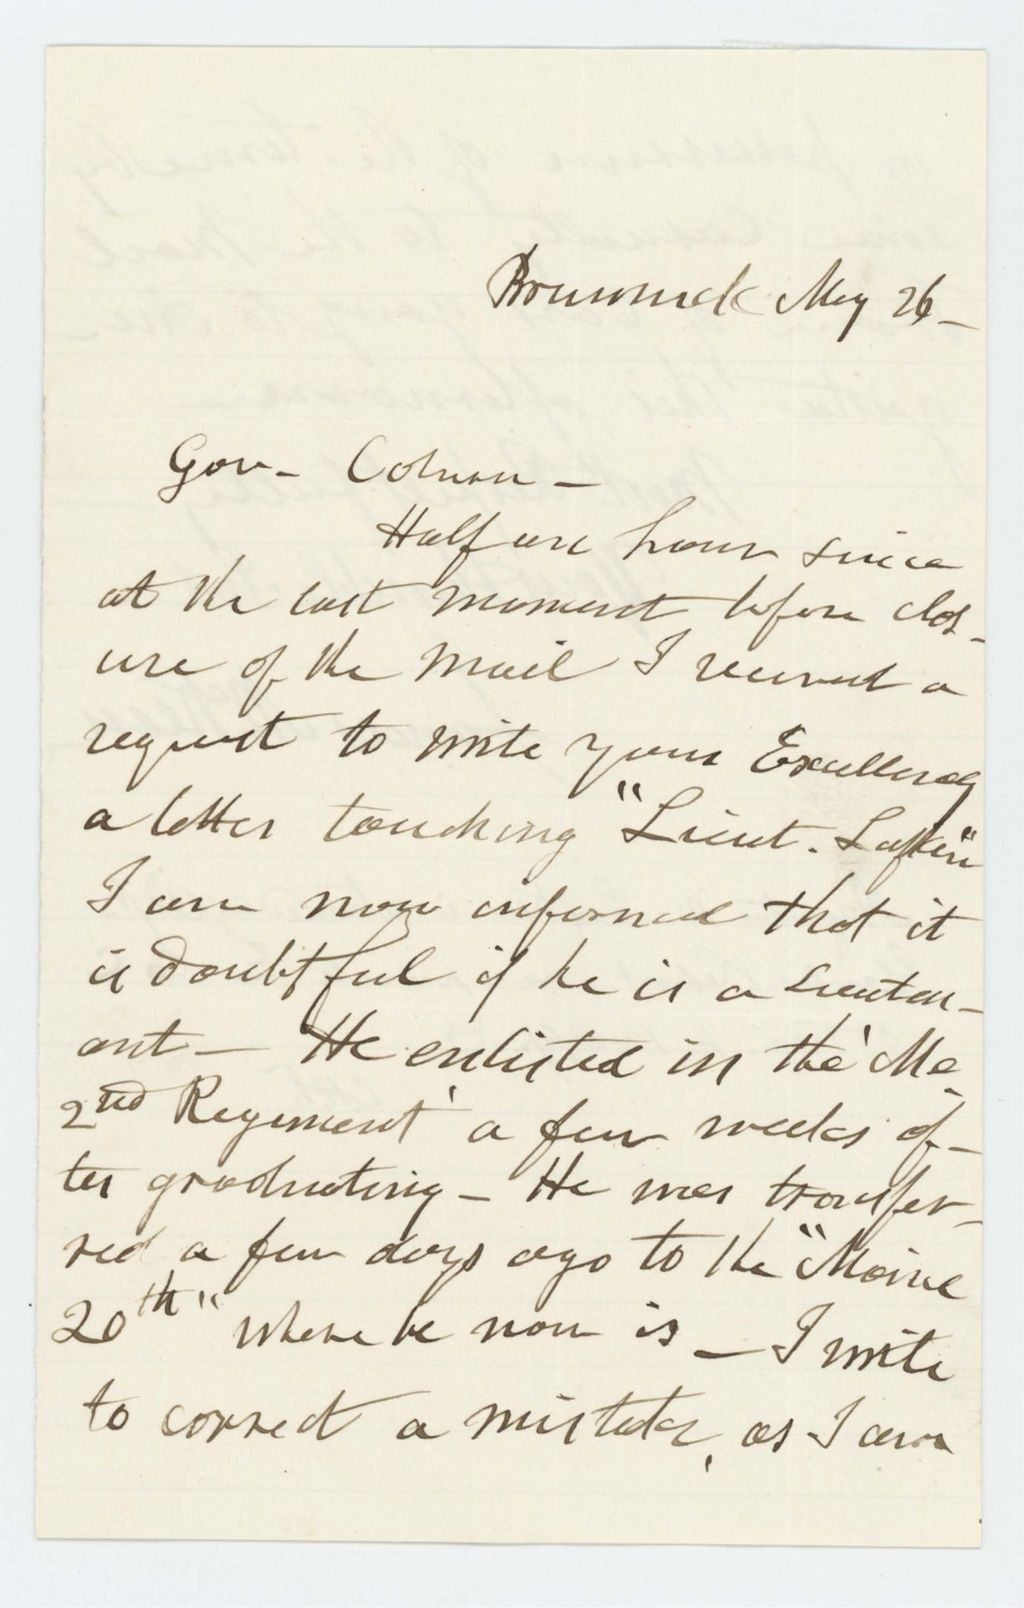 Brunswick May 26 –
Gov – Coburn –
Half an hour since
at the last moment before clos-
ure of the mail I received a
request to write your Excellency
a letter touching "Lieut. Lufkin"
I am now informed that it
is doubtful if he is a Lieuten-
ant – He enlisted in the 'Me.
2nd Regiment' a few weeks af-
ter graduating – He was transfer-
red a few days ago to the "Maine
20th" where he now is – I write
to correct a mistake, as I am